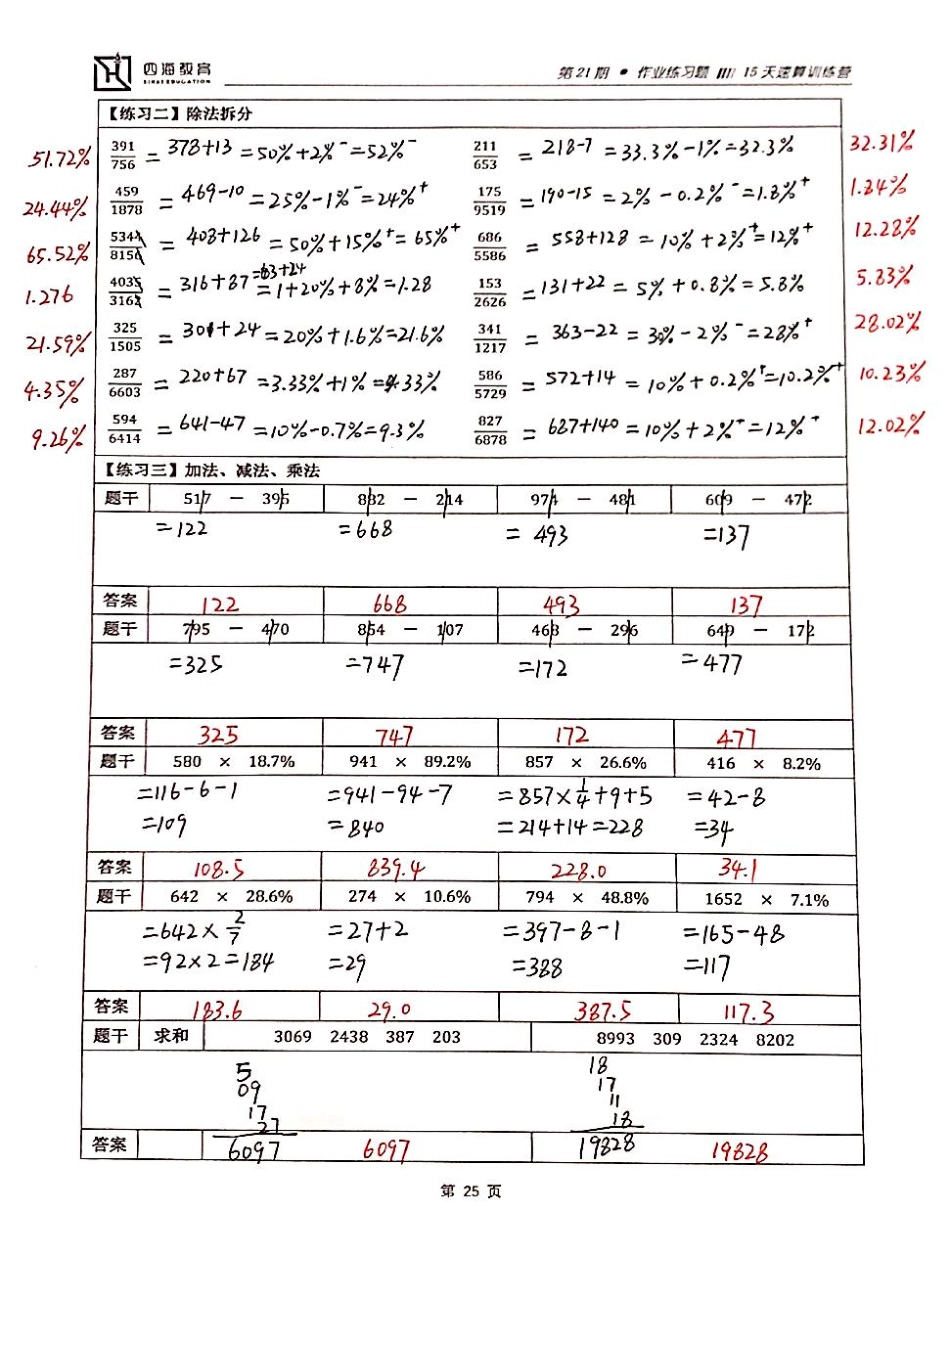 四海教育
SIHAI EDUCATION
第21期 • 作业练习题 //// 15天速算训练营
【练习二】除法拆分
51.72% 391/756 = 378+13 = 50%+2%⁻ = 52%⁻ 211/653 = 218-7 = 33.3%-1% = 32.3% 32.31%
24.44% 459/1878 = 469-10 = 25%-1%⁻ = 24%⁺ 175/9519 = 190-15 = 2%-0.2%⁻ = 1.8%⁺ 1.84%
65.52% 534/815 = 408+126 = 50%+15%⁺ = 65%⁺ 686/5586 = 558+128 = 10%+2%⁺ = 12%⁺ 12.28%
1.276 403/316 = 316+87 = 63+24 = 1+20%+8% = 1.28 153/2626 = 131+22 = 5%+0.8% = 5.8% 5.83%
21.59% 325/1505 = 301+24 = 20%+1.6% = 21.6% 341/1217 = 363-22 = 30%-2%⁻ = 28%⁺ 28.02%
4.35% 287/6603 = 220+67 = 3.33%+1% = 4.33% 586/5729 = 572+14 = 10%+0.2%⁺ = 10.2%⁺ 10.23%
9.26% 594/6414 = 641-47 = 10%-0.7% = 9.3% 827/6878 = 687+140 = 10%+2%⁺ = 12%⁺ 12.02%
【练习三】加法、减法、乘法
题干 517 － 395 882 － 214 974 － 481 609 － 472
=122 =668 = 493 =137
答案 122 668 493 137
题干 795 － 470 854 － 107 468 － 296 649 － 172
=325 =747 =172 =477
答案 325 747 172 477
题干 580 × 18.7% 941 × 89.2% 857 × 26.6% 416 × 8.2%
=116-6-1 =941-94-7 =857×1/4+9+5 =42-8
=109 =840 =214+14=228 =34
答案 108.5 839.4 228.0 34.1
题干 642 × 28.6% 274 × 10.6% 794 × 48.8% 1652 × 7.1%
=642×2/7 =27+2 =397-8-1 =165-48
=92×2=184 =29 =388 =117
答案 183.6 29.0 387.5 117.3
题干 求和 3069 2438 387 203 8993 309 2324 8202
5 18
09 17
17 11
27 18
答案 6097 6097 19828 19828
第 25 页